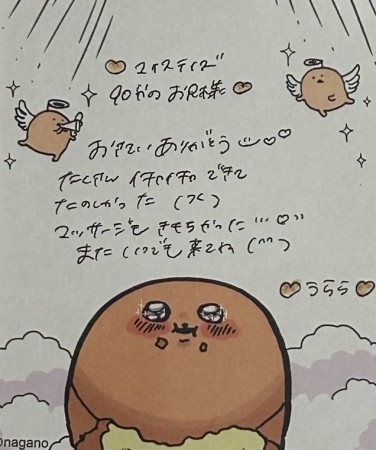 マイステイズ
90分の お兄様
おさそい ありがとう
たくさん イチャイチャ できて
たのしかった
マッサージも きもちかった
また いつでも 来てね (^^)
うらら
©nagano